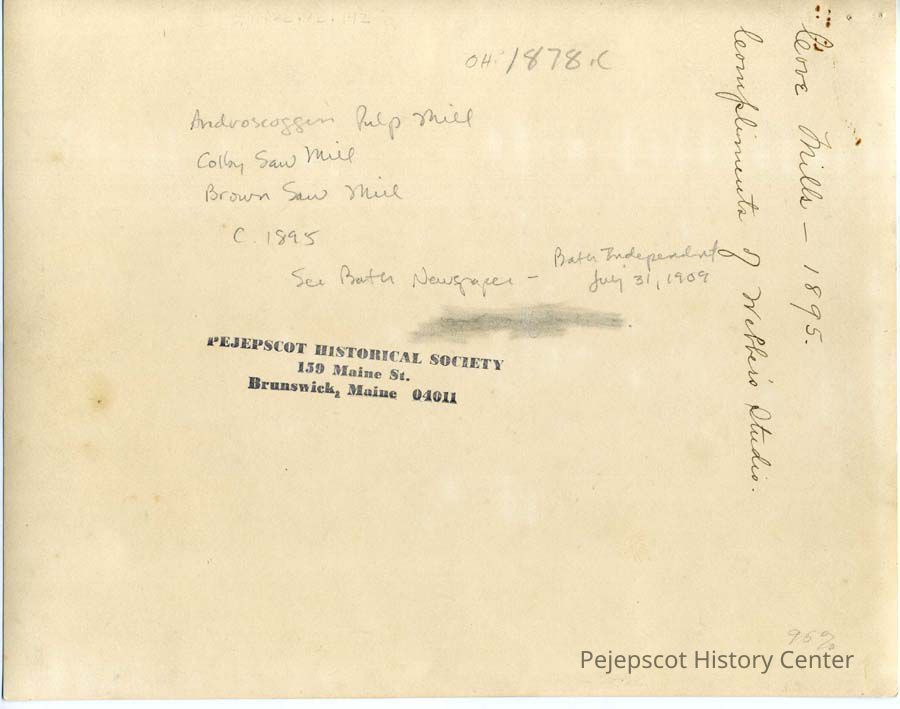 OH 1878.C
Androscoggin Pulp Mill
Colby Saw Mill
Brown Saw Mill
C. 1895
See Bath Newspaper - Bath Independent
July 31, 1909
PEJEPSCOT HISTORICAL SOCIETY
159 Maine St.
Brunswick, Maine 04011
Cove Mills - 1895.
Compliments of Webber's Studio.
Pejepscot History Center